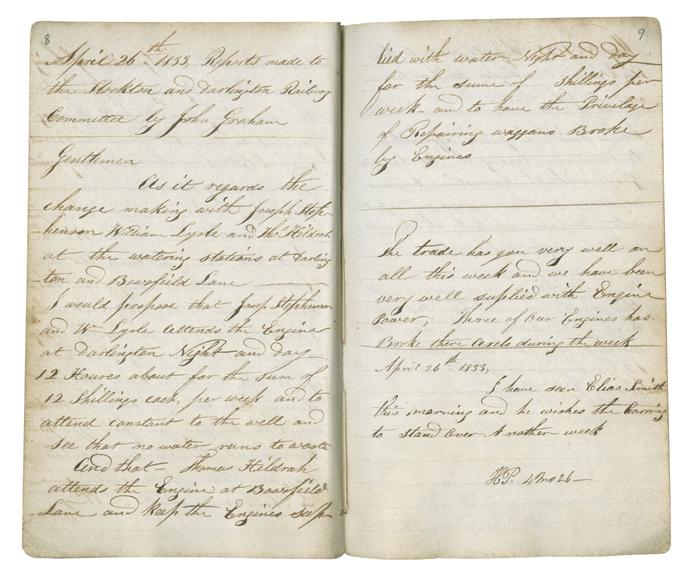 8
April 26th 1833, Reports made to
the Stockton and Darlington Railway
Committee by John Graham
Gentlemen
As it regards the
change making with Joseph Step-
henson William Lyste and Thos Hildrah
at the watering stations at Darling-
ton and Bowsfield Lane
I would propose that Josep Stephenson
and Wm Lysle Attends the Engine
at Darlington Night and day
12 Houres about for the sum of
12 Shillings each, per week and to
attend constant to the well and
See that no water runs to waste
And that Thomas Hildrah
attends the Engine at Bowsfield
Lane and keep the Engines sup-
9
lied with water Night and day
for the sume of Shillings per
week and to have the Privelege
of Repairing waggans Broke
by Engines
The trade has gon very well on
all this week and we have been
very well supplied with Engine
Power, Three of Our Engines has
Broke there Axels during the week
April 26th 1833,
I have seen Elias Smith
this morning and he wishes the
to Stand Over Another week
HP. 4 mo 26